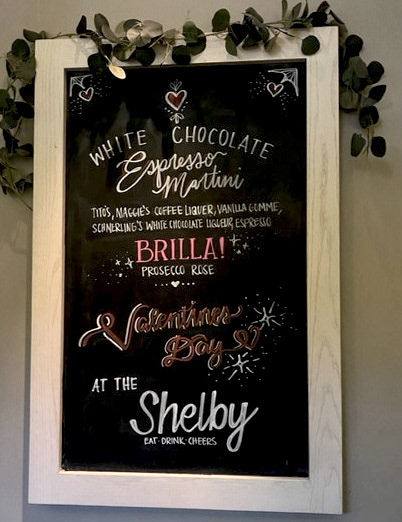 WHITE CHOCOLATE
Espresso
Martini
TITO'S, MAGGIE'S COFFEE LIQUER, VANILLA GOMME,
SCHMERLING'S WHITE CHOCOLATE LIQUEUR, ESPRESSO
BRILLA!
PROSECCO ROSE
Valentines
Day
AT THE
Shelby
EAT·DRINK·CHEERS